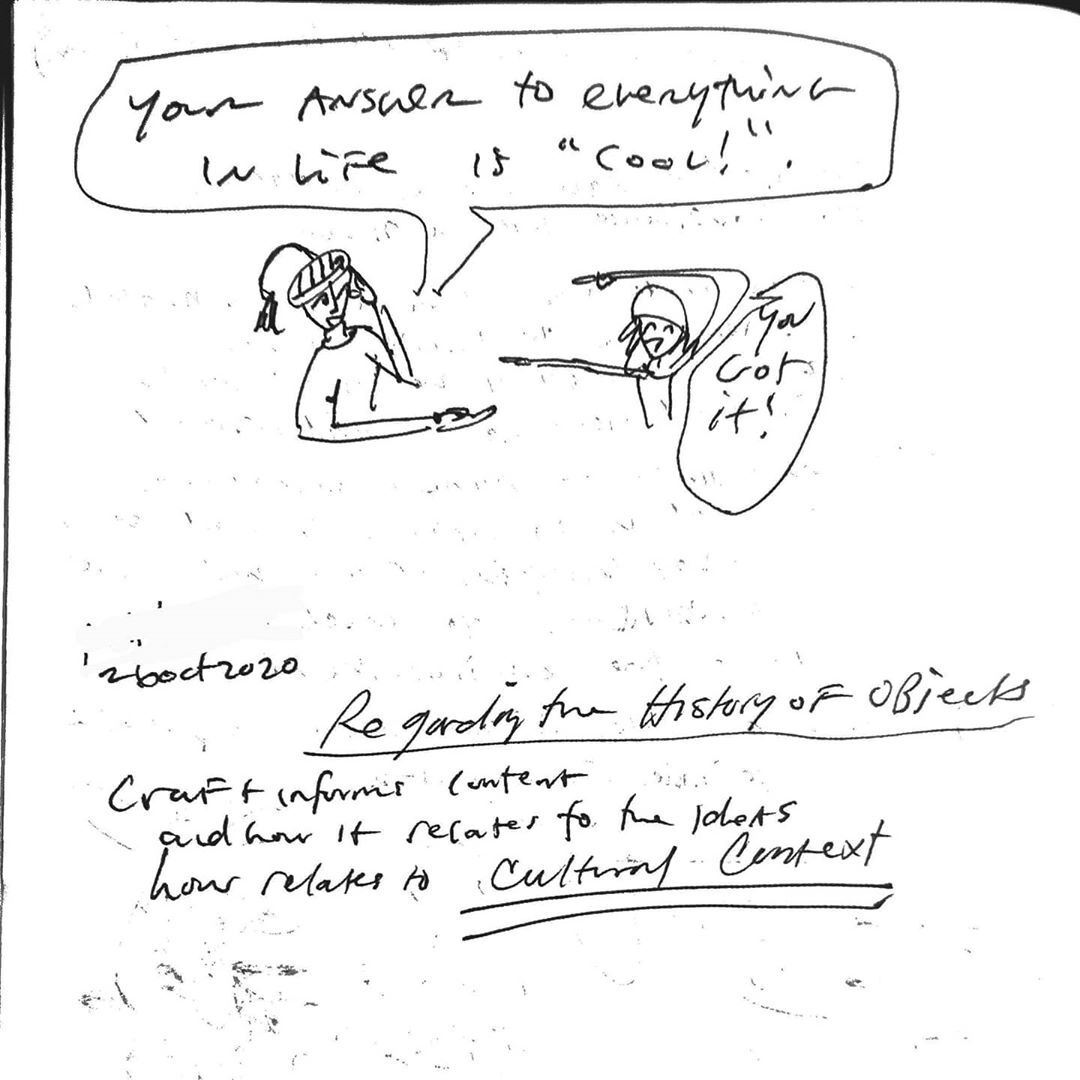 Your Answer to everything
in Life is "Cool!".
You
Got
it!
26oct2020
Regarding the History of Objects
Craft informs content
and how it relates to the Ideas
how relates to Cultural Context